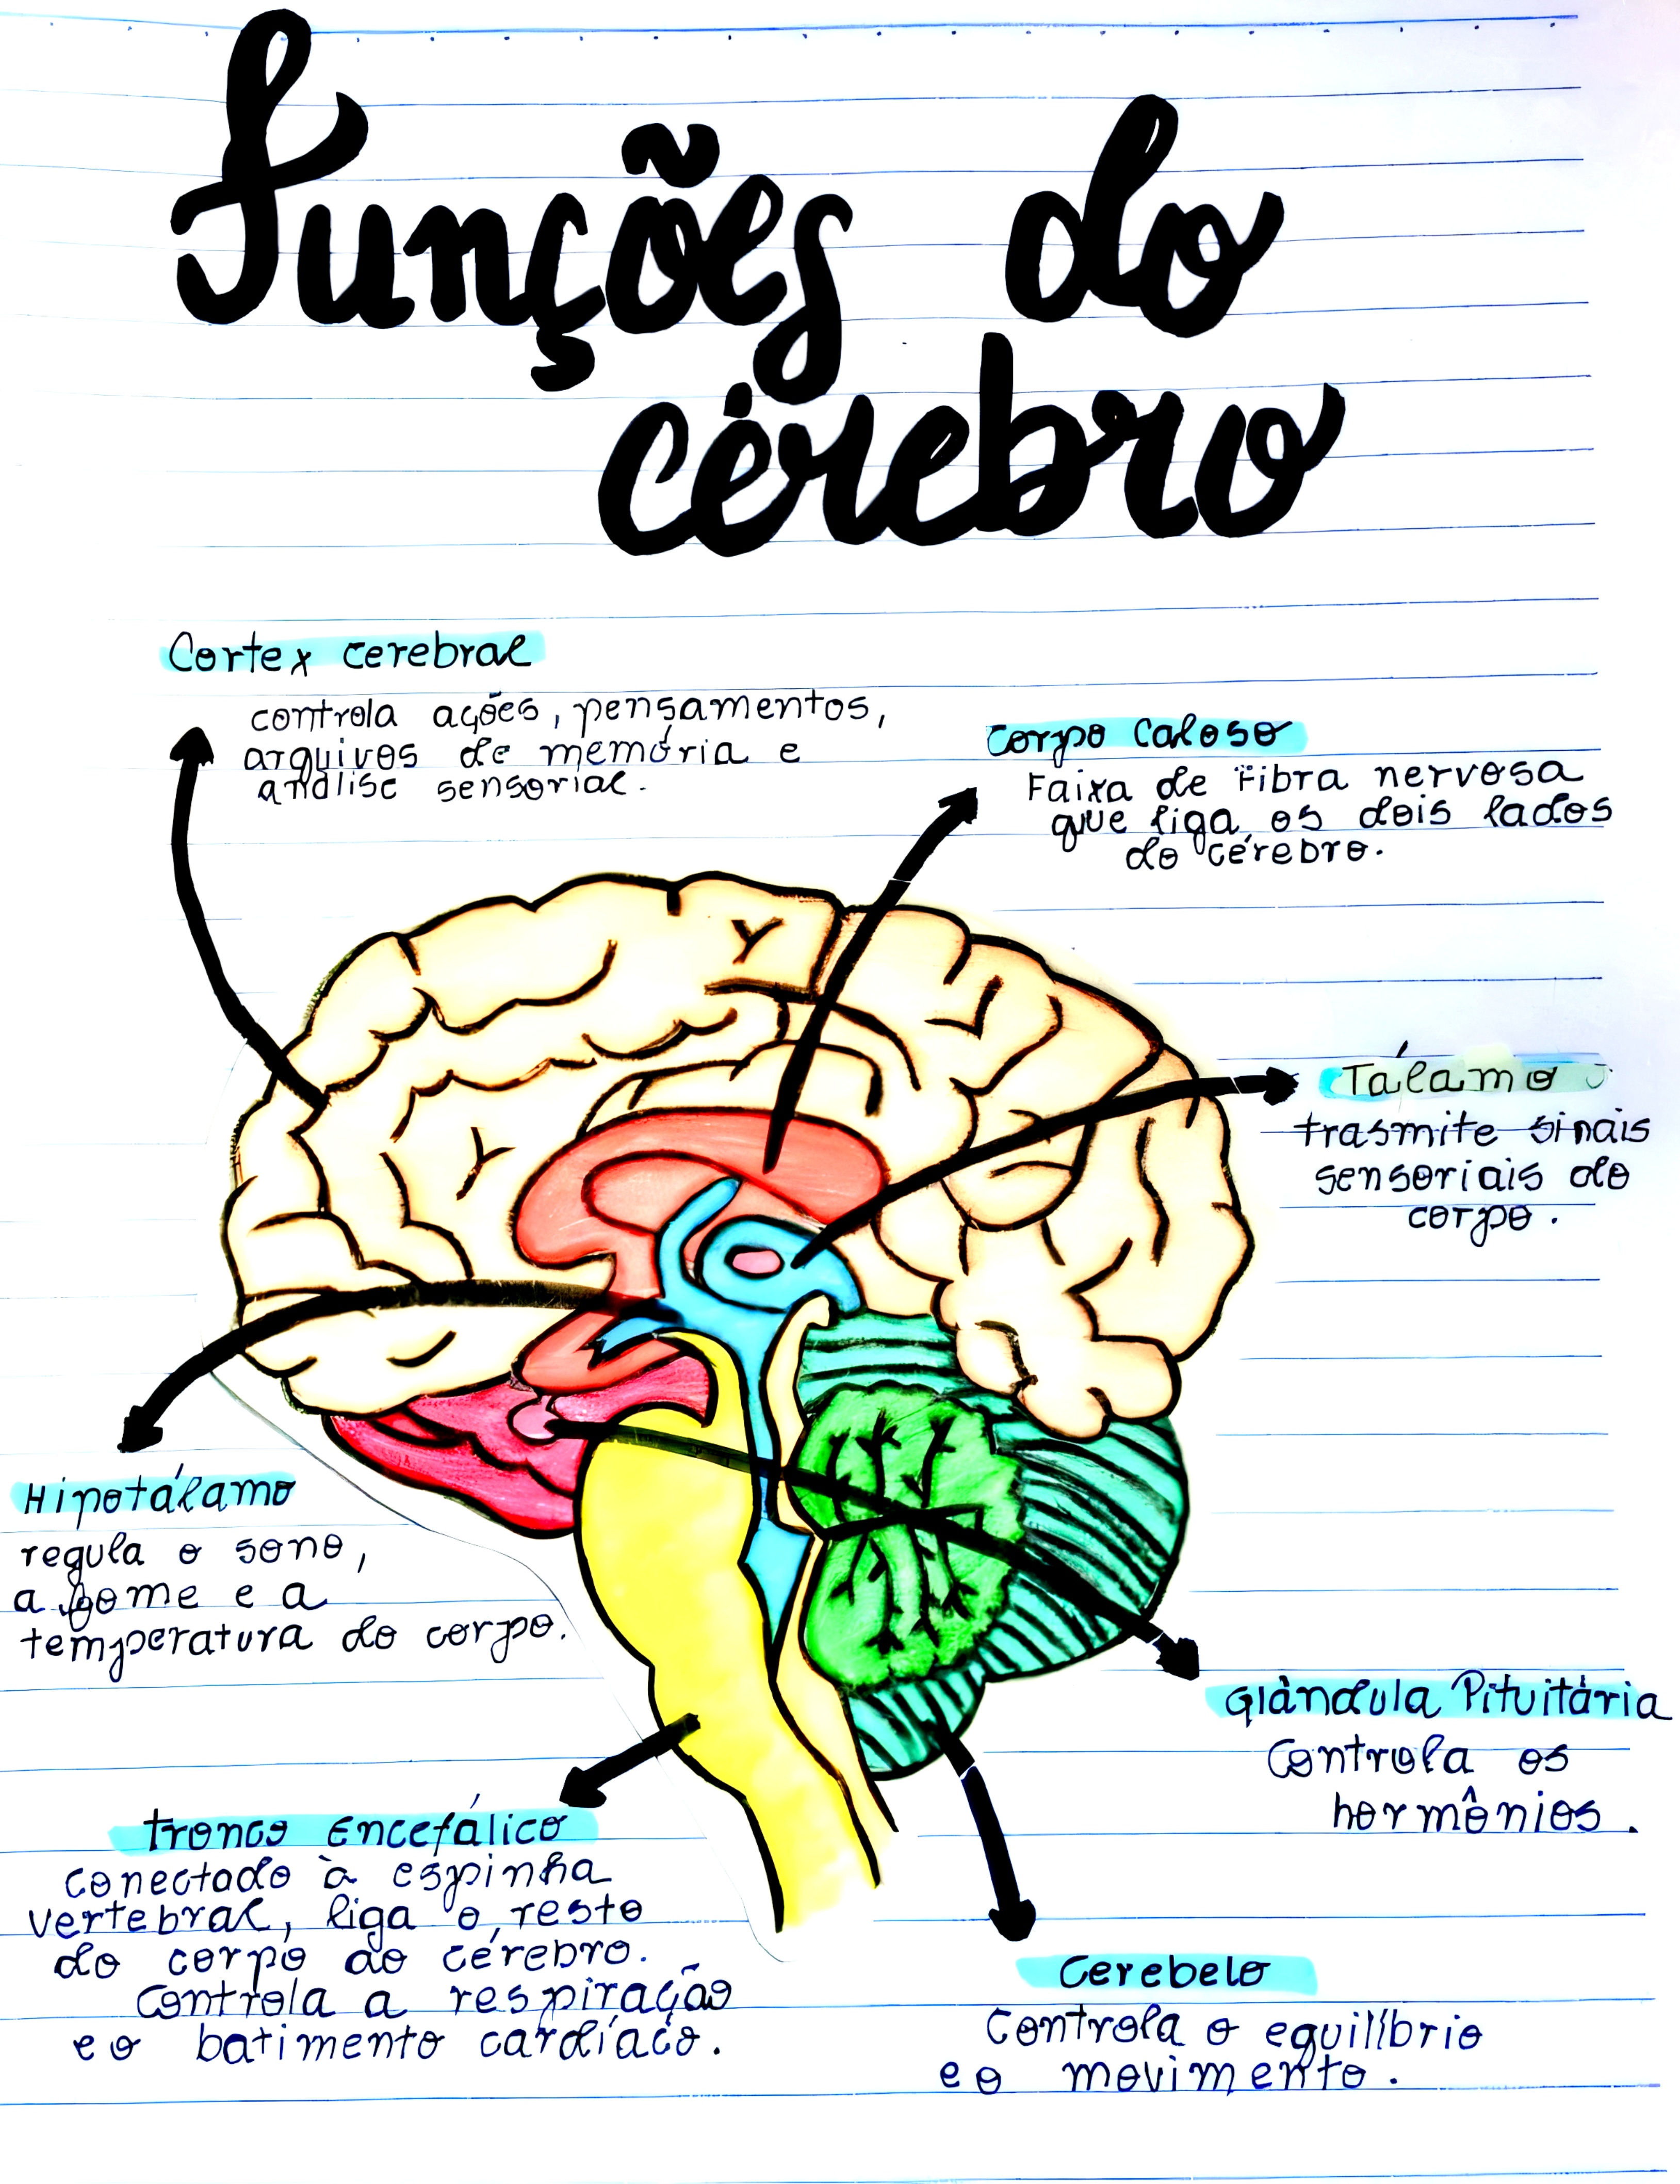 Funções do
cérebro
Cortex cerebral
controla ações, pensamentos,
arquivos de memória e
análise sensorial.
Corpo Caloso
Faixa de Fibra nervosa
que liga os dois lados
do cérebro.
Tálamo
trasmite sinais
sensoriais do
corpo.
Hipotálamo
regula o sono,
a fome e a
temperatura do corpo.
Glândula Pituitária
Controla os
hormônios.
tronco Encefálico
conectado à espinha
vertebral, liga o resto
do corpo ao cérebro.
Controla a respiração
e o batimento cardíaco.
Cerebelo
Controla o equilíbrio
e o movimento.